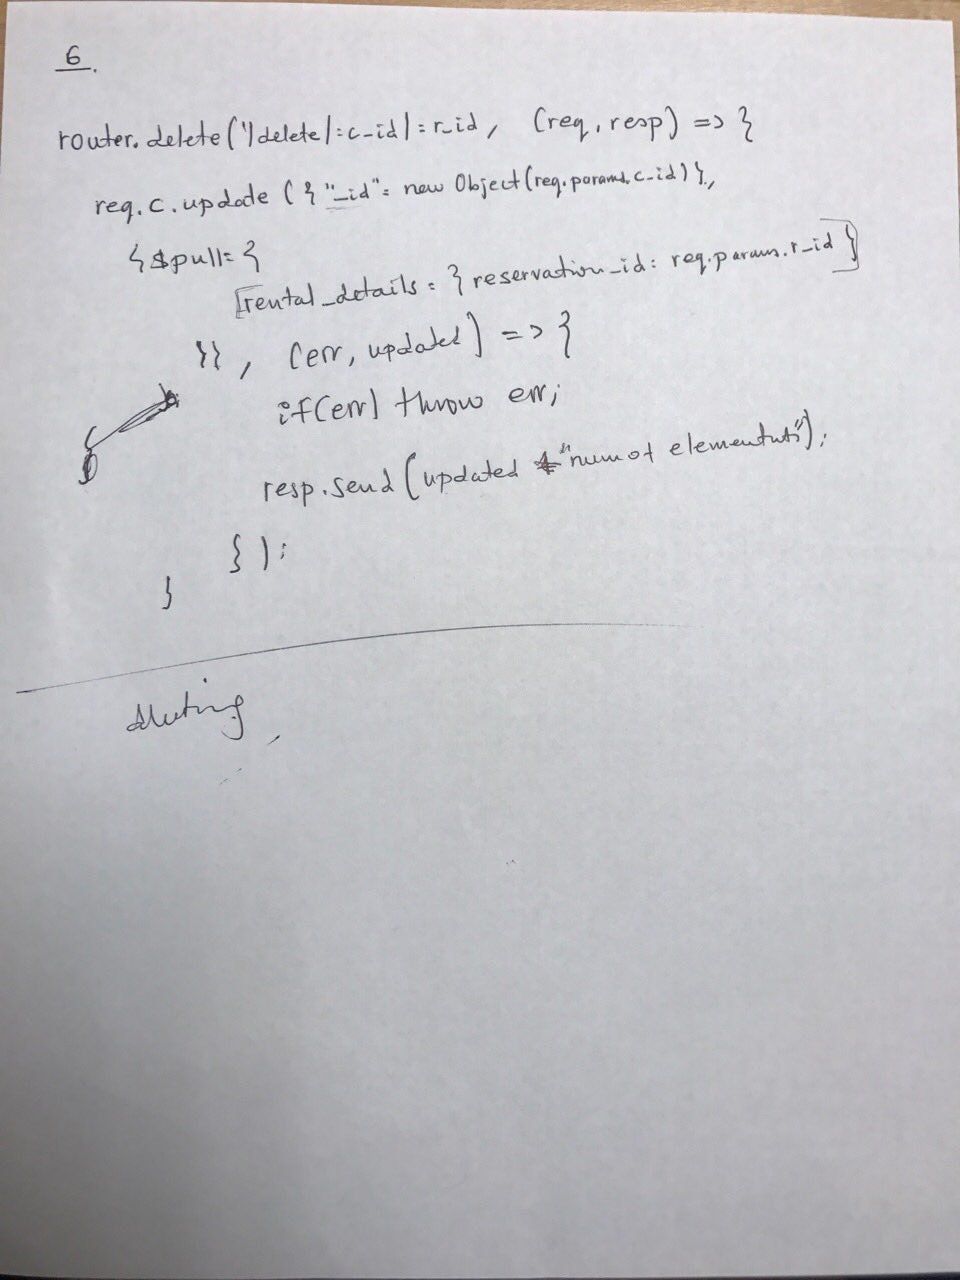 6.
router.delete('/delete/:c_id/:r_id, (req, resp) => {
req.c.update({"_id": new Object(req.params.c_id)},
{$pull: {
[rental_details: {reservation_id: req.params.r_id}]
}}, (err, updated) => {
if(err) throw err;
resp.send(updated + "num of
});
}